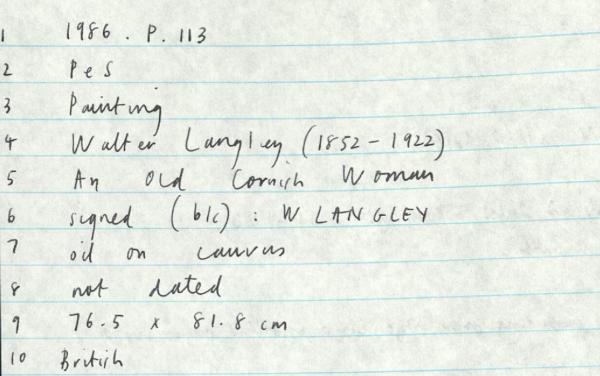 1 1986. P. 113
2 PeS
3 Painting
4 Walter Langley (1852 - 1922)
5 An Old Cornish Woman
6 signed (blc) : W LANGLEY
7 oil on canvas
8 not dated
9 76.5 x 81.8 cm
10 British